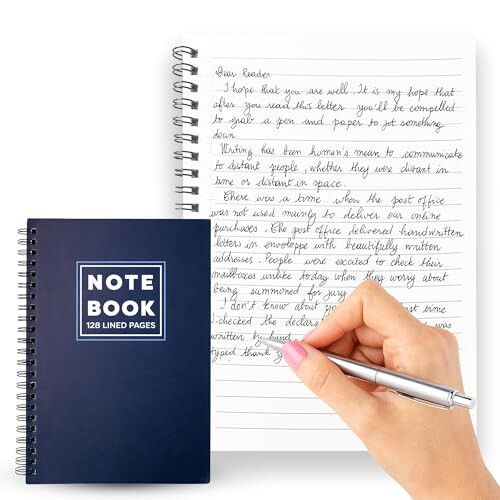 NOTE
BOOK
128 LINED PAGES
Dear Reader
I hope that you are well. It is my hope that
after you read this letter you'll be compelled
to grab a pen and paper to jot something
down.
Writing has been human's mean to communicate
to distant people, whether they were distant in
time or distant in space.
There was a time when the post office
was not used mainly to deliver our online
purchases. The post office delivered handwritten
letters in enveloppe with beautifully written
addresses. People were excited to check their
mailboxes unlike today when they worry about
being summoned for jury
I don't know about you time
I checked the was
written by hand
typed thank